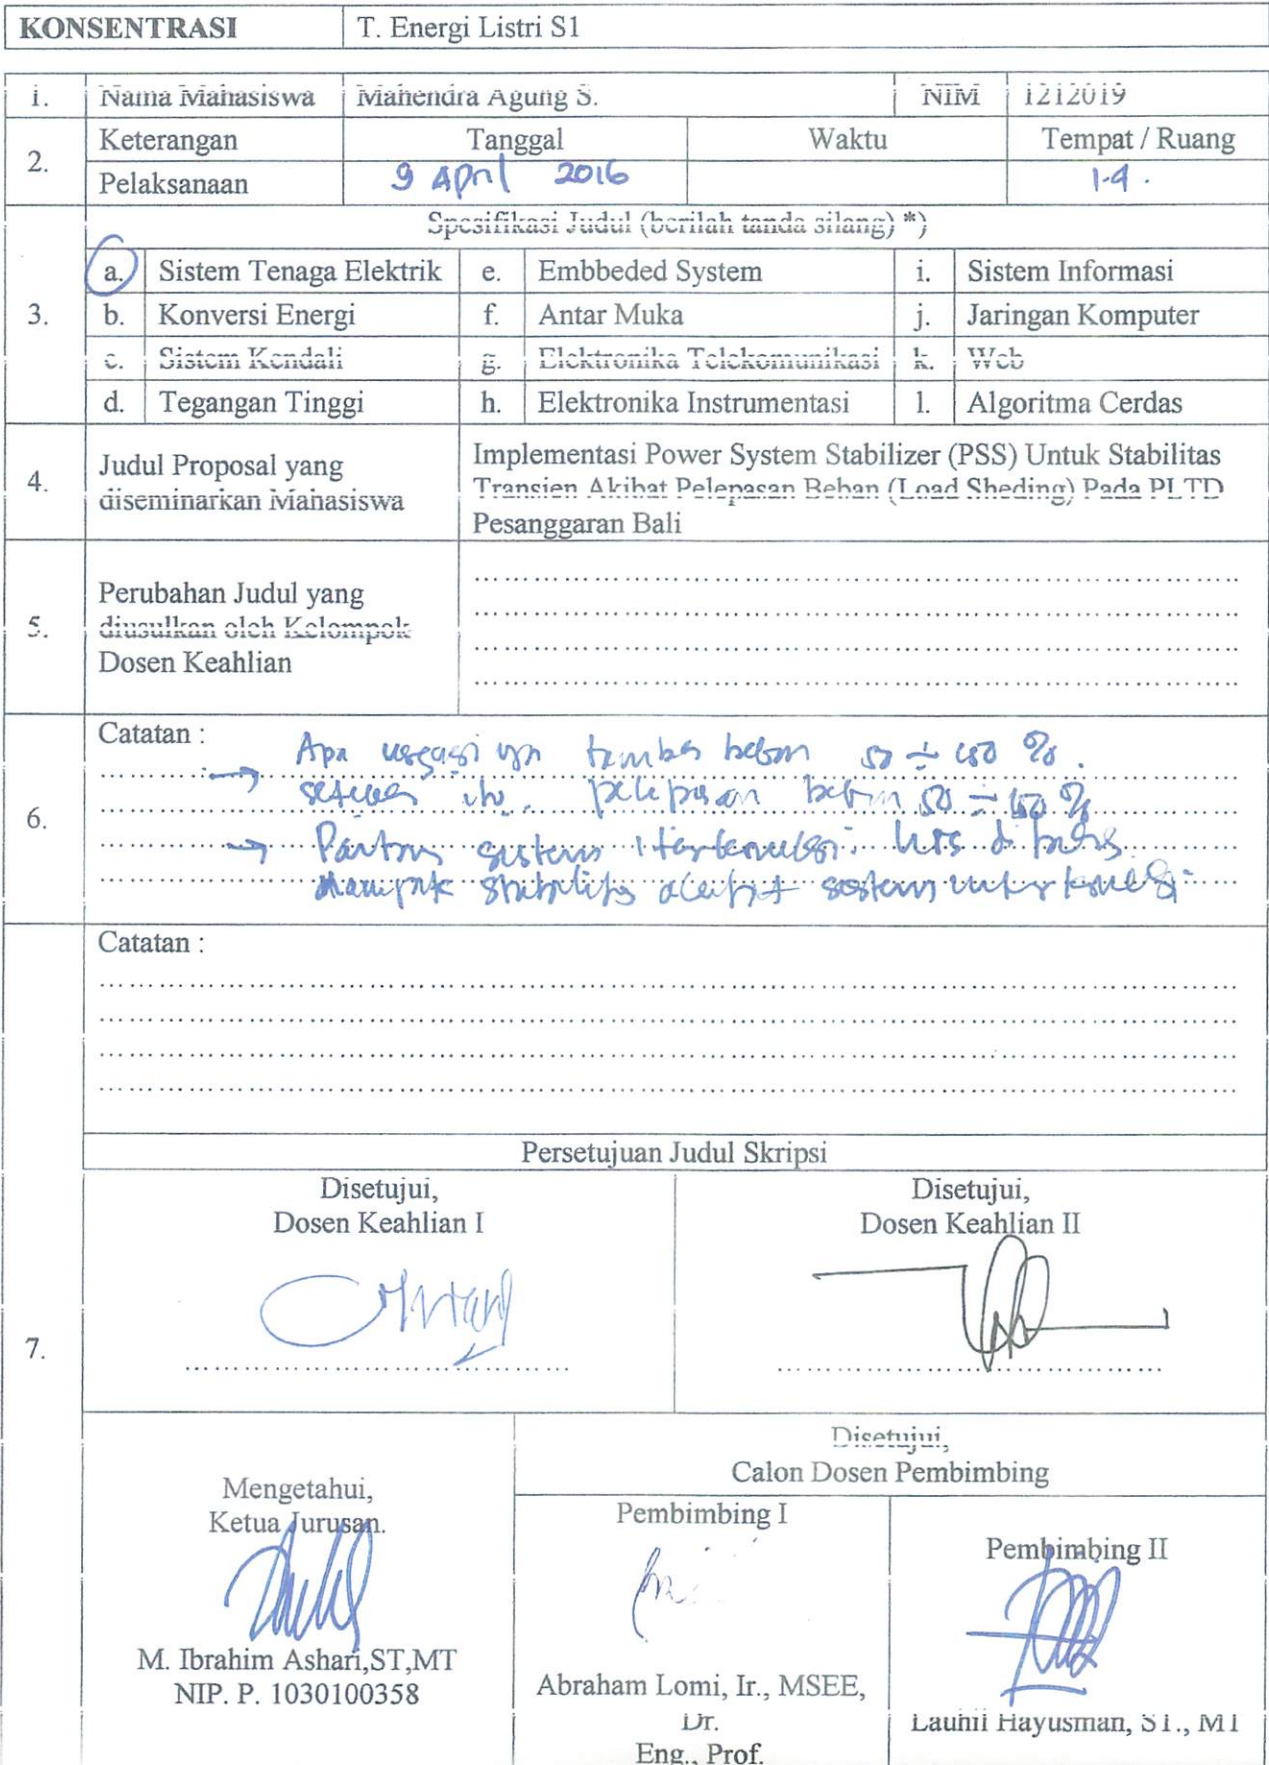 KONSENTRASI T. Energi Listri S1
1. Nama Mahasiswa Mahendra Agung S. NIM 1212019
2. Keterangan Tanggal Waktu Tempat / Ruang
Pelaksanaan 9 April 2016 1-4.
Spesifikasi Judul (berilah tanda silang) *)
3.
a. Sistem Tenaga Elektrik e. Embbeded System i. Sistem Informasi
b. Konversi Energi f. Antar Muka j. Jaringan Komputer
c. Sistem Kendali g. Elektronika Telekomunikasi k. Web
d. Tegangan Tinggi h. Elektronika Instrumentasi l. Algoritma Cerdas
4. Judul Proposal yang diseminarkan Mahasiswa
Implementasi Power System Stabilizer (PSS) Untuk Stabilitas
Transien Akibat Pelepasan Beban (Load Sheding) Pada PLTD
Pesanggaran Bali
5. Perubahan Judul yang
diusulkan oleh Kelompok
Dosen Keahlian
6. Catatan :
→ Apa beban 50 ÷ %.
pelepasan beban 50 ÷ %
→ sistem
stabilitas akibat sistem interkoneksi
Catatan :
7.
Persetujuan Judul Skripsi
Disetujui,
Dosen Keahlian I
Disetujui,
Dosen Keahlian II
Mengetahui,
Ketua Jurusan.
M. Ibrahim Ashari,ST,MT
NIP. P. 1030100358
Disetujui,
Calon Dosen Pembimbing
Pembimbing I
Abraham Lomi, Ir., MSEE,
Dr.
Eng., Prof.
Pembimbing II
Lauhil Hayusman, ST., MT